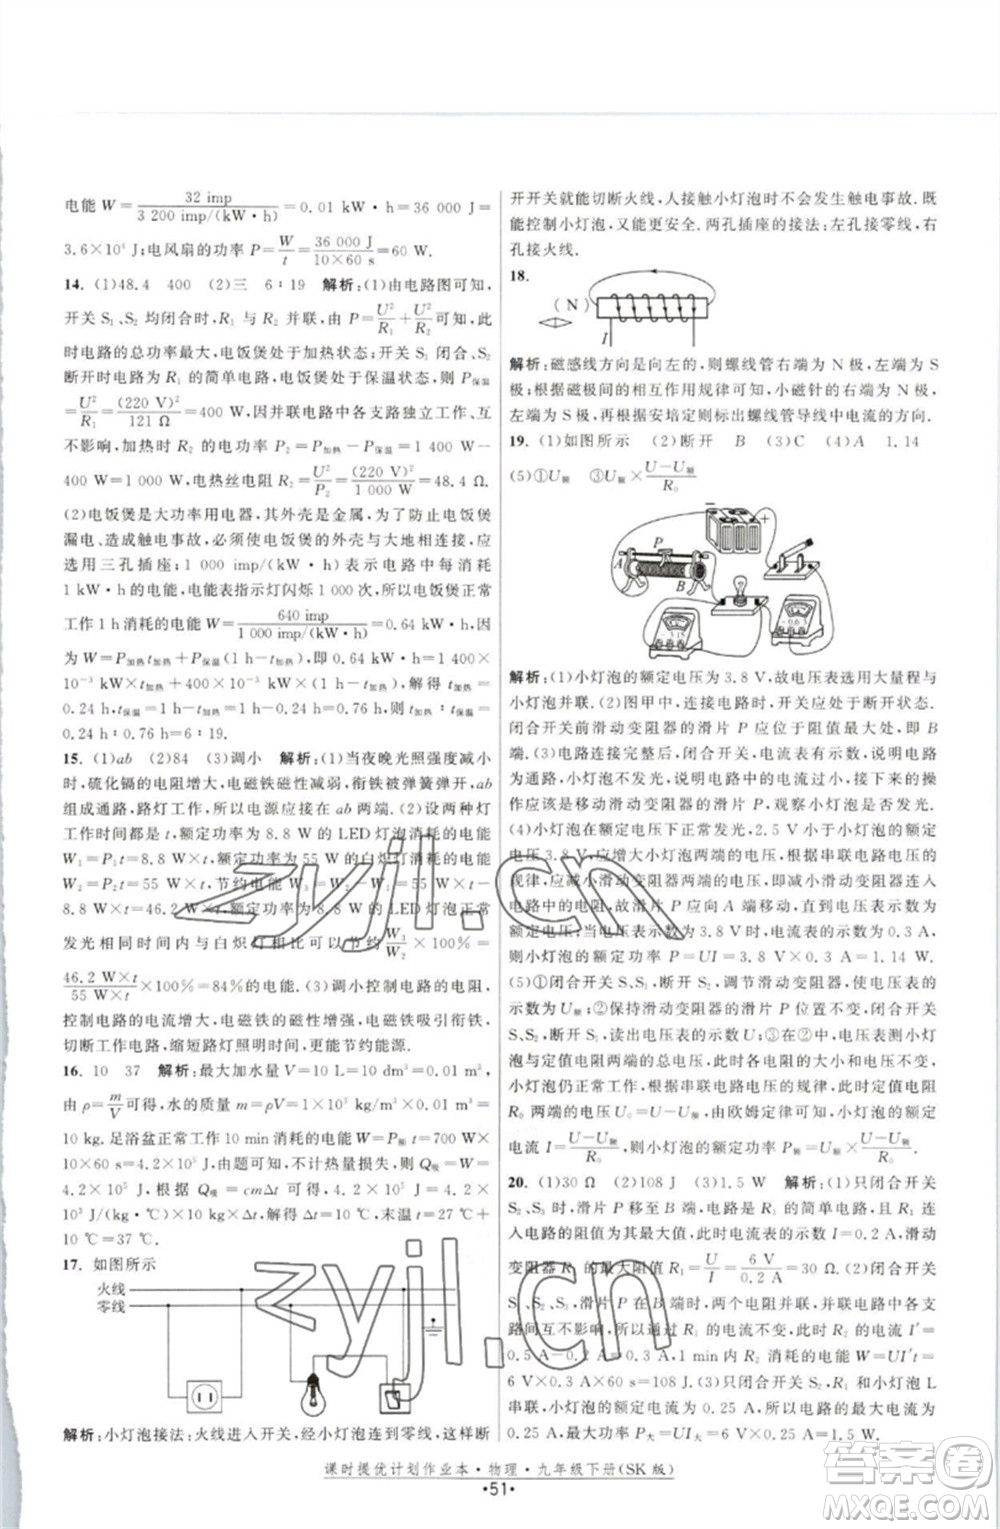 电能 W=32 imp/3 200 imp/(kW·h)=0.01 kW·h=36 000 J=
3.6×10⁴ J;电风扇的功率 P=W/t=36 000 J/10×60 s=60 W.
14. (1)48.4 400 (2)三 6∶19 解析:(1)由电路图可知,
开关 S₁、S₂ 均闭合时,R₁ 与 R₂ 并联,由 P=U²/R₁+U²/R₂可知,
此时电路的总功率最大,电饭煲处于加热状态;开关 S₁ 闭合、S₂
断开时电路为 R₁ 的简单电路,电饭煲处于保温状态,P保温=
U²/R₁=(220 V)²/121 Ω=400 W,因并联电路中各支路独立工作、互
不影响,加热时 R₂ 的电功率 P₂=P加热-P保温=1 400 W-
400 W=1 000 W,电热丝电阻 R₂=U²/P₂=(220 V)²/1 000 W=48.4 Ω.
(2)电饭煲是大功率用电器,其外壳是金属,为了防止电饭煲
漏电、造成触电事故,必须将电饭煲的外壳与大地相连接,故
选用三孔插座.1 000 imp/(kW·h)表示电路中每消耗
1 kW·h 的电能,电能表指示灯闪烁 1 000 次,所以电饭煲正常
工作 1 h 消耗的电能 W=640 imp/1 000 imp/(kW·h)=0.64 kW·h,
因为 W=P加热t加热+P保温t保温,即 0.64 kW·h=1 400×
10⁻³ kW×t加热+400×10⁻³ kW×(1 h-t加热),解得 t加热=
0.24 h,t保温=1 h-0.24 h=0.76 h,所以 t加热∶t保温=
0.24 h∶0.76 h=6∶19.
15. (1)ab (2)84 (3)调小 解析:(1)当夜晚光照强度减小
时,硫化镉的电阻增大,电磁铁磁性减弱,衔铁被弹簧弹开,ab
组成通路,路灯工作,所以电源应接在 ab 两端.(2)设两种灯
工作时间都为 t,额定功率为 8.8 W 的 LED 灯泡消耗的电能
W₁=P₁t=8.8 W×t,额定功率为 55 W 的白炽灯消耗的电能
W₂=P₂t=55 W×t,节约电能 W₃=W₂-W₁=55 W×t-
8.8 W×t=46.2 W×t,故使用额定功率为 8.8 W 的 LED 灯泡正常
发光相同时间内与白炽灯相比可以节约W₃/W₂×100%=
46.2 W×t/55 W×t×100%=84%的电能.(3)调小控制电路的电阻,
控制电路的电流增大,电磁铁的磁性增强,吸引衔铁,
切断工作电路,缩短路灯照明时间.
16. 10 37 解析:最大加水量 V=10 L=10 dm³=0.01 m³,
由 ρ=m/V可得,水的质量 m=ρV=1×10³ kg/m³×0.01 m³=
10 kg.足浴盆正常工作 10 min 消耗的电能 W=P额t=700 W×
10×60 s=4.2×10⁵ J,由题意可知,不计热量损失,Q吸=W=
4.2×10⁵ J,根据 Q吸=cmΔt 可得,Δt=Q吸/cm=4.2×10⁵ J/4.2×
10³ J/(kg·℃)×10 kg=10 ℃,末温 t=t₀+Δt=27 ℃+
10 ℃=37 ℃.
17. 如图所示
火线
零线
解析:小灯泡接法:火线进入开关,经小灯泡连到零线,这样断
开开关就能切断火线,人接触小灯泡时不会发生触电事故.既
能控制小灯泡,又能更安全.两孔插座的接法:左孔接零线,右
孔接火线.
18.
(N)
I
解析:磁感线方向是向左的,则螺线管右端为 N 极,左端为 S
极;根据磁极间的相互作用规律可知,小磁针的右端为 N 极,
左端为 S 极,再根据安培定则标出螺线管导线中电流的方向.
19. (1)如图所示 (2)断开 B (3)C (4)A 1.14
(5)①U额 ③U额×U-U额/R₀
− + P A B
解析:(1)小灯泡的额定电压为 3.8 V,故电压表选用大量程与
小灯泡并联.(2)图甲中,在连接电路时,开关应处于断开状态,
闭合开关前滑动变阻器的滑片 P 应位于阻值最大处,即 B
端.(3)电路连接完整后,闭合开关,电流表有示数,说明电路
为通路,小灯泡不发光,说明电路中的电流过小,接下来的操作
应该是移动滑动变阻器的滑片 P,观察小灯泡是否发光.
(4)小灯泡在额定电压下正常发光,2.5 V 小于小灯泡的额定
电压,应增大小灯泡两端的电压,根据串联电路中电压的
规律,应减小滑动变阻器两端的电压,即减小滑动变阻器连入
电路中的电阻,故滑片 P 应向 A 端移动,直到电压表示数为额定
电压;当电压表示数为 3.8 V 时,电流表的示数为 0.3 A,
则小灯泡的额定功率 P=UI=3.8 V×0.3 A=1.14 W.
(5)①闭合开关 S、S₁,断开 S₂,调节滑动变阻器,使电压表的
示数为 U额;②保持滑动变阻器的滑片 P 位置不变,闭合开关
S、S₂,断开 S₁,读出电压表的示数 U;③在②中,电压表测小灯
泡与定值电阻两端的总电压,由于电路的连接关系不变,
小灯泡仍正常工作.根据串联电路电压的规律,定值电阻
R₀ 两端的电压 U₀=U-U额,由欧姆定律可知,小灯泡的额定
电流 I=U-U额/R₀,则小灯泡的额定功率 P额=U额×U-U额/R₀.
20. (1)30 Ω (2)108 J (3)1.5 W 解析:(1)只闭合开关
S、S₁,滑片 P 在 B 端时,R₁ 与小灯泡 L 串联,滑动变阻器连
入电路的阻值为其最大值,此时电流表的示数 I=0.2 A,滑动
变阻器 R₁ 的最大阻值 R₁=U/I=6 V/0.2 A=30 Ω.(2)闭合开关
S、S₁、S₂,滑片 P 在 B 端时,两个电阻并联,并联电路中各支
路间互不影响,通过 R₁ 的电流不变,则通过 R₂ 的电流 I′=
0.5 A-0.2 A=0.3 A,1 min 内 R₂ 消耗的电能 W=UI′t=
6 V×0.3 A×60 s=108 J.(3)只闭合开关 S₂,R₁ 和小灯泡 L
串联,小灯泡的额定电流为 0.25 A,则电路中最大电流为
0.25 A,最大功率 P大=UI大=6 V×0.25 A=1.5 W.
课时提优计划作业本·物理·九年级下册(SK 版)
·51·
zyjl.cn
zyjl.cn
答案圈
MXQE.COM